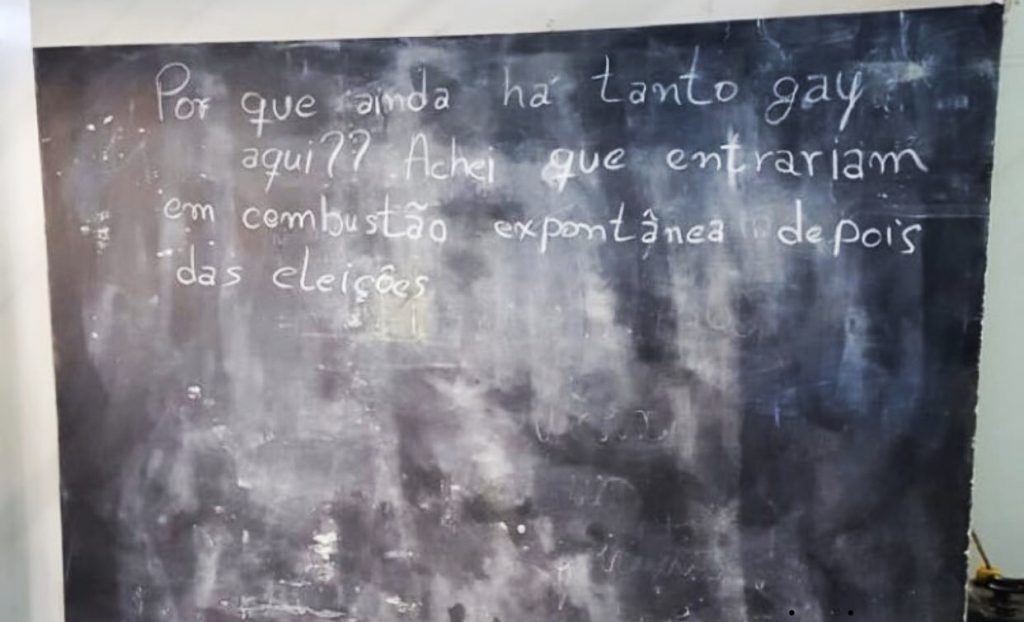 Por que ainda há tanto gay
aqui?? Achei que entrariam
em combustão expontânea depois
das eleições